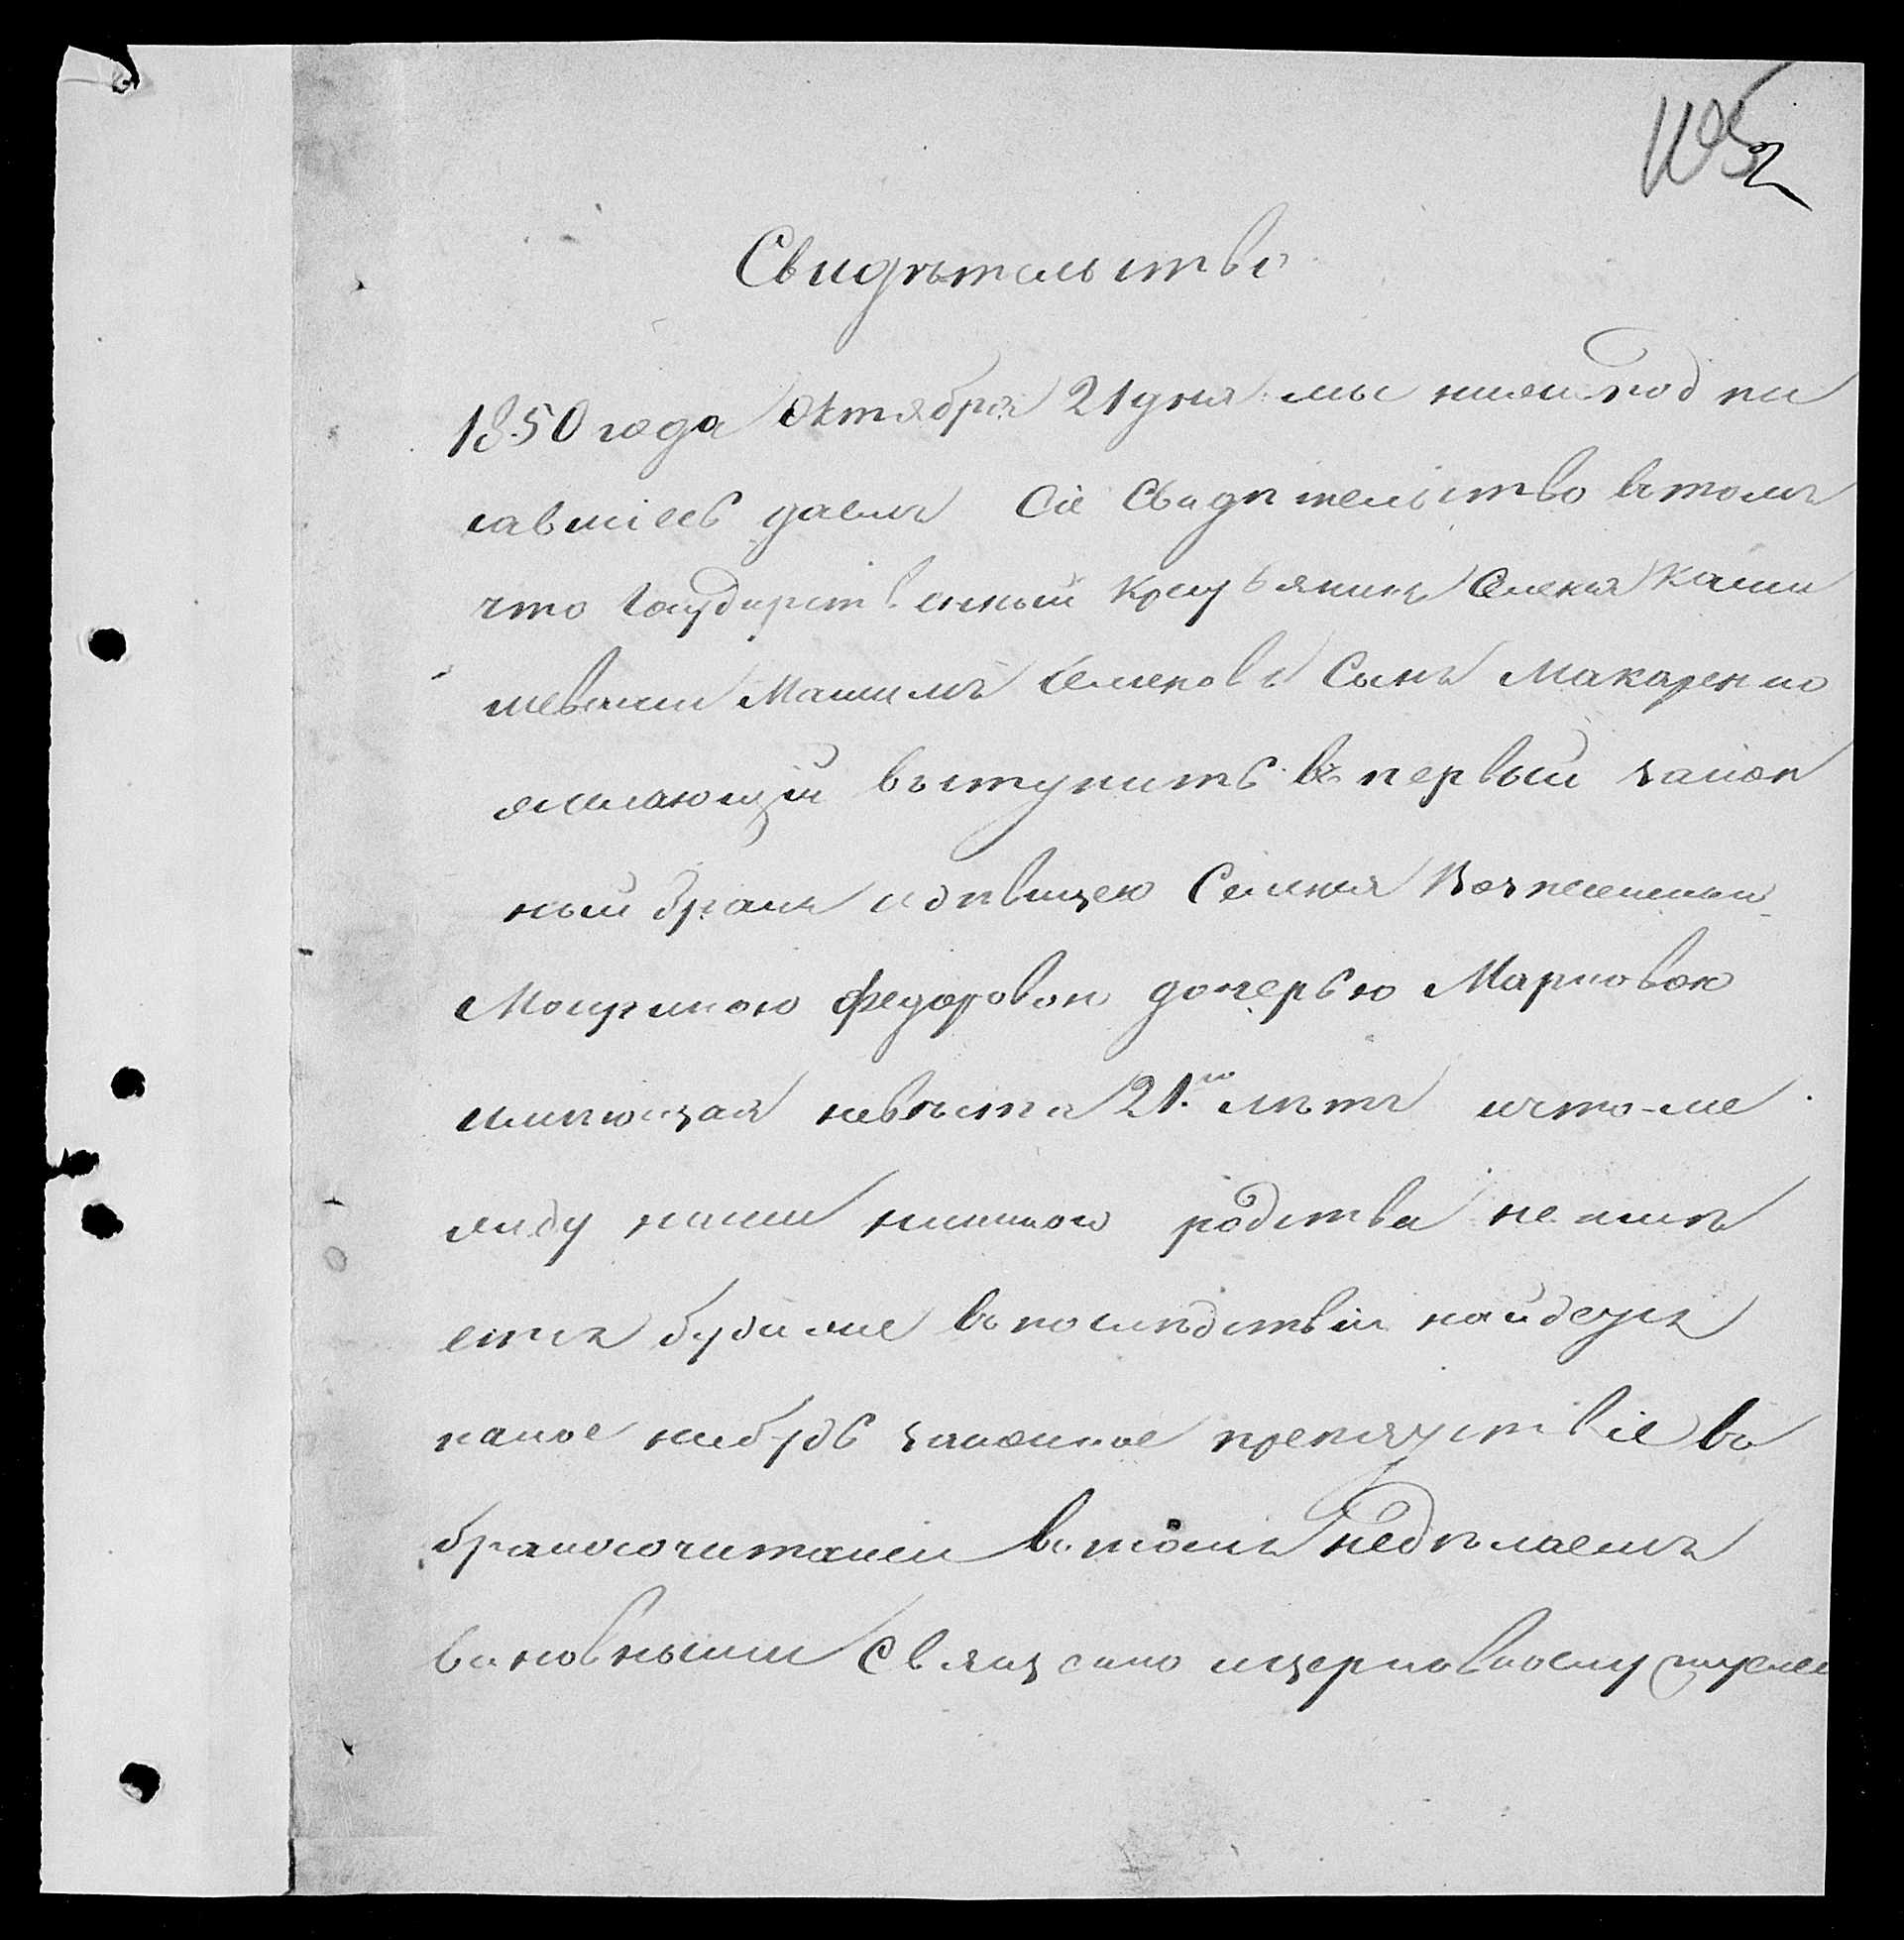 Свидѣтельство
1850 года Октября 21 дня мы нижеподпи
савшіесь даемъ Сіе Свидѣтельство втомъ
что Государственный Крестьянинъ Селенія
шеваши Семеновъ Сынъ Макаренко
желающій въступить въ первый закон
ный бракъ сдѣвицею Селенія
Федоровою дочерью Марковою
имѣющая невѣста 21.го лѣтъ ичто-ме
жду нами никакого родства не имѣ
етъ буди же въпослѣдствіи найдецъ
какое нибудь законное препяцствіе въ
бракосочитаніи втомъ недѣлаемъ
виновными Священо ицерковному